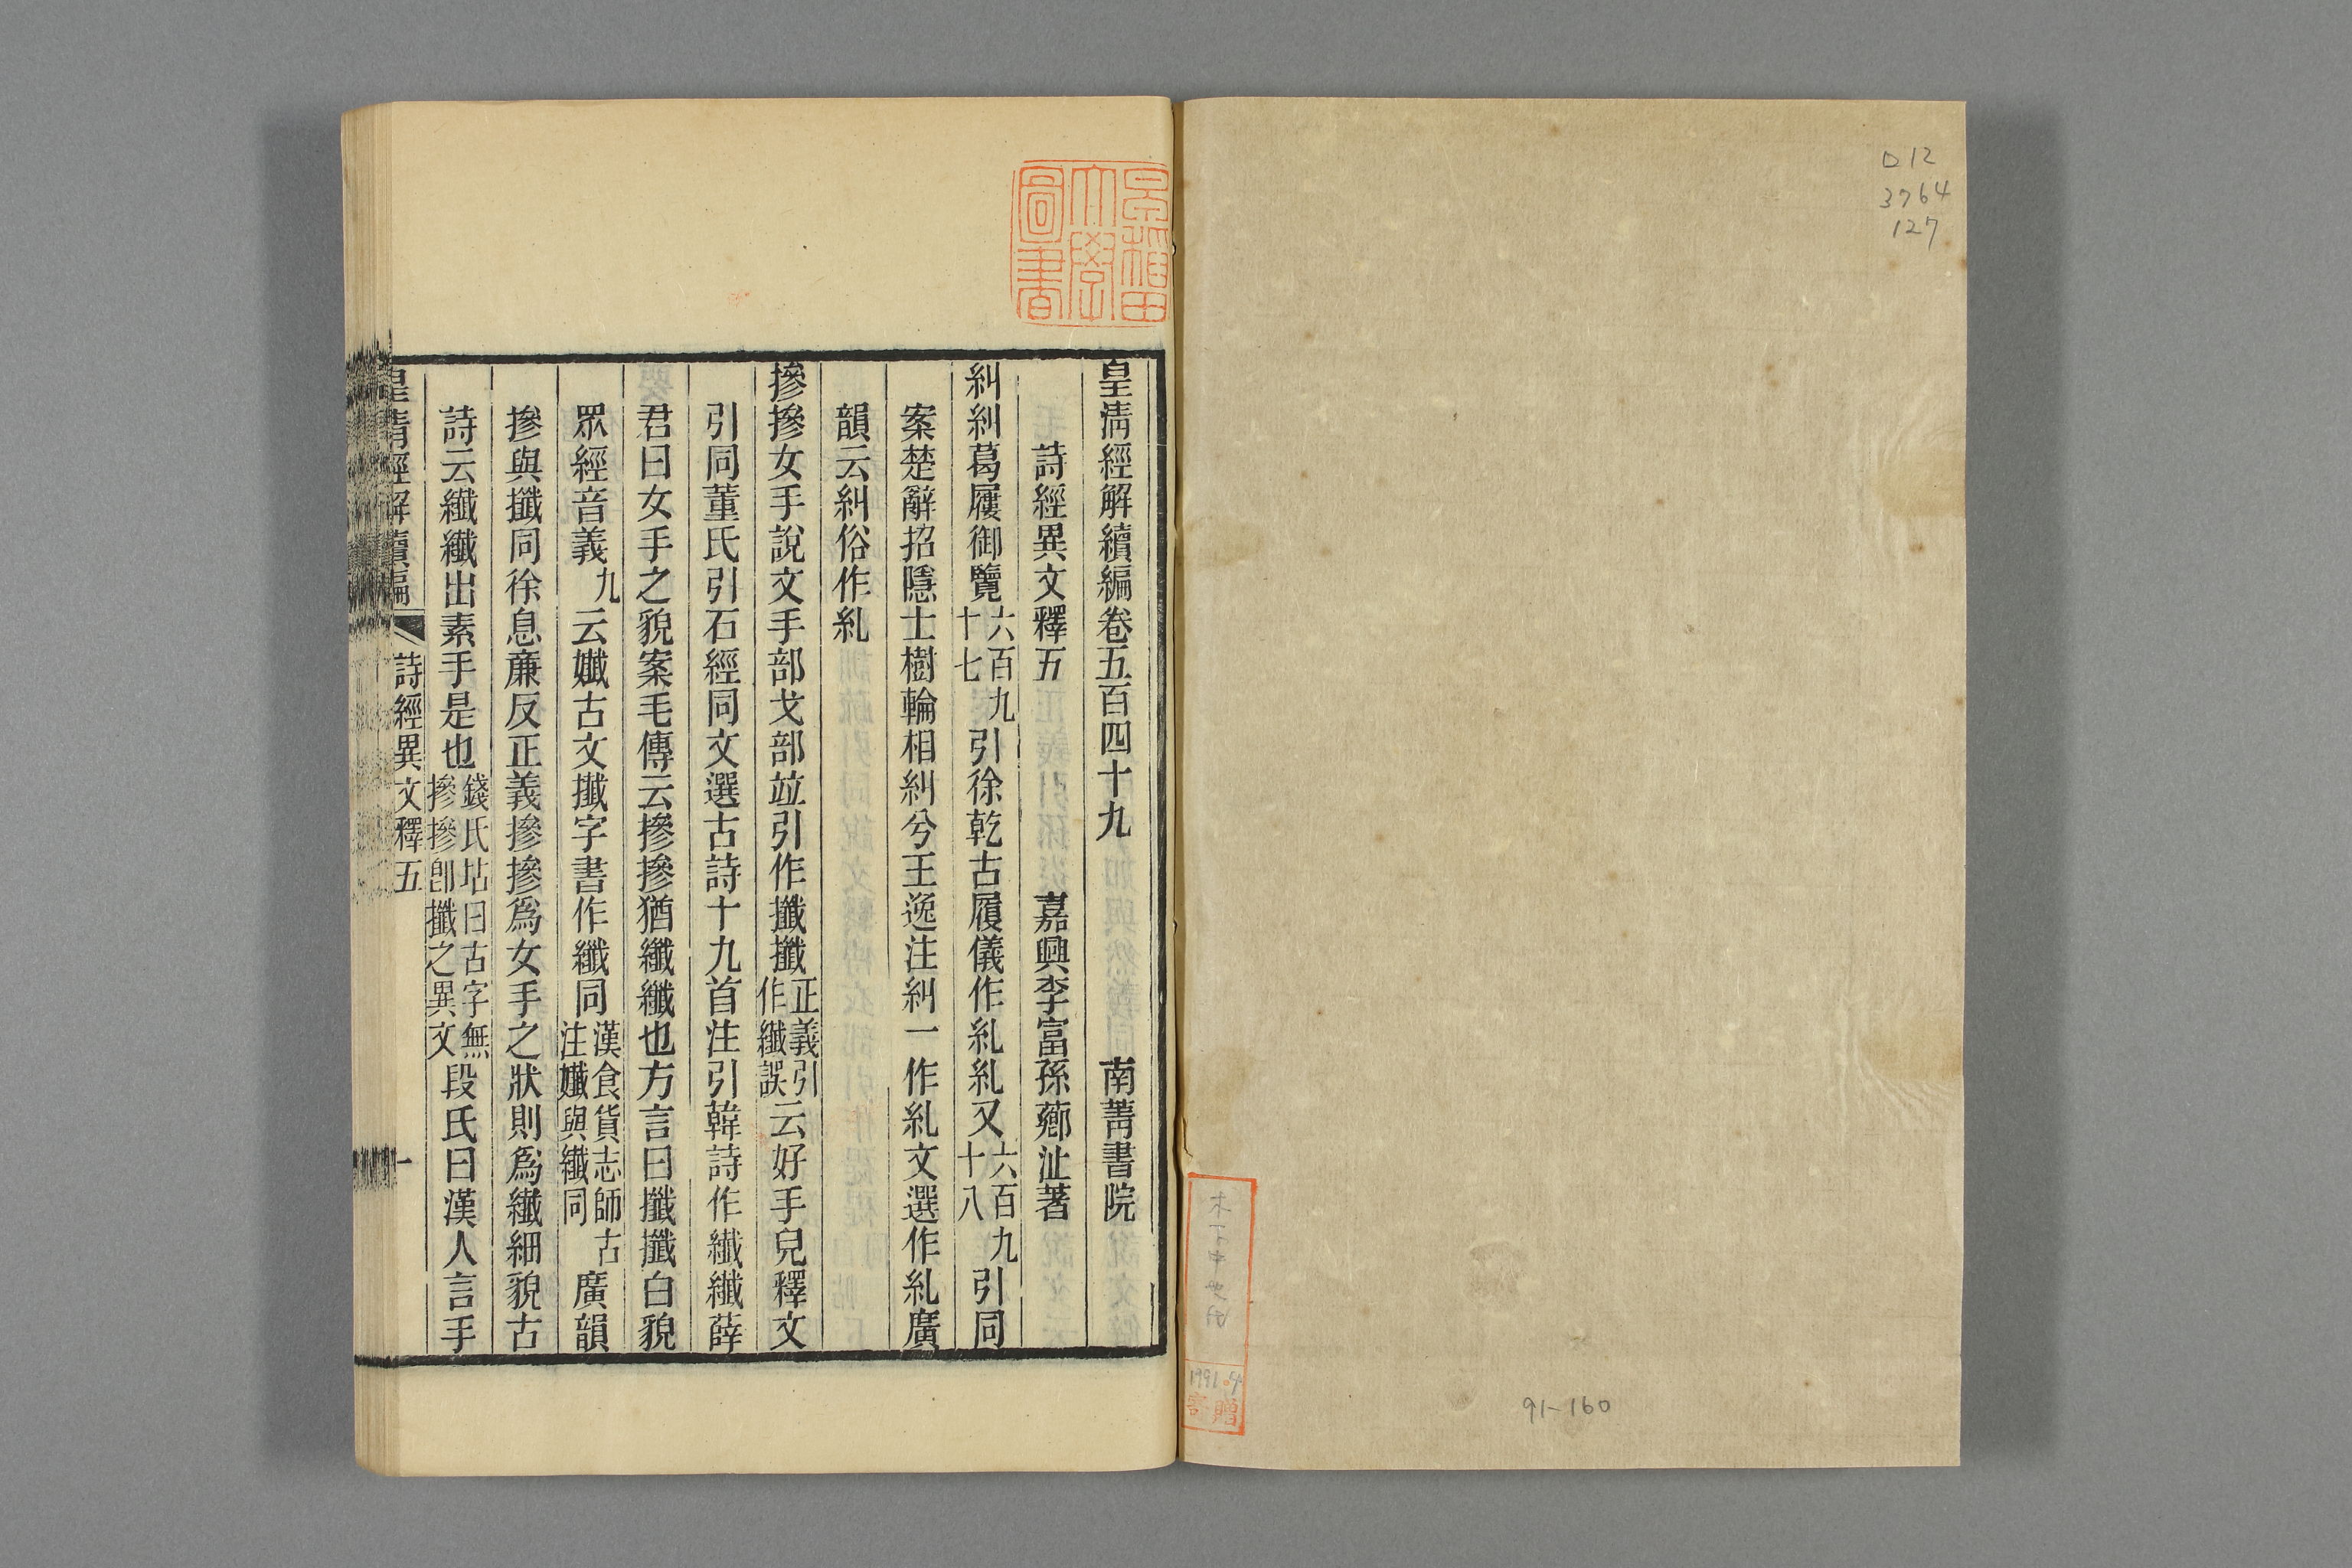 D12
3764
127
91-160
1991.4
寄贈
早稲田大學圖書
皇清經解續編卷五百四十九 南菁書院
詩經異文釋五 嘉興李富孫薌沚著
糾糾葛屨御覽六百九十七引徐乾古履儀作糺糺又六百九十八引同
案楚辭招隱士樹輪相糾兮王逸注糾一作糺文選作糺廣
韻云糾俗作糺
摻摻女手說文手部戈部竝引作攕攕正義引作纖誤云好手皃釋文
引同董氏引石經同文選古詩十九首注引韓詩作纖纖薛
君曰女手之貌案毛傳云摻摻猶纖纖也方言曰攕攕白貌
眾經音義九云孅古文攕字書作纖同漢食貨志師古注孅與纖同廣韻
摻與攕同徐息廉反正義摻摻爲女手之狀則爲纖細貌古
詩云纖纖出素手是也錢氏坫曰古字無摻摻卽攕之異文段氏曰漢人言手
皇清經解續編 詩經異文釋五 一